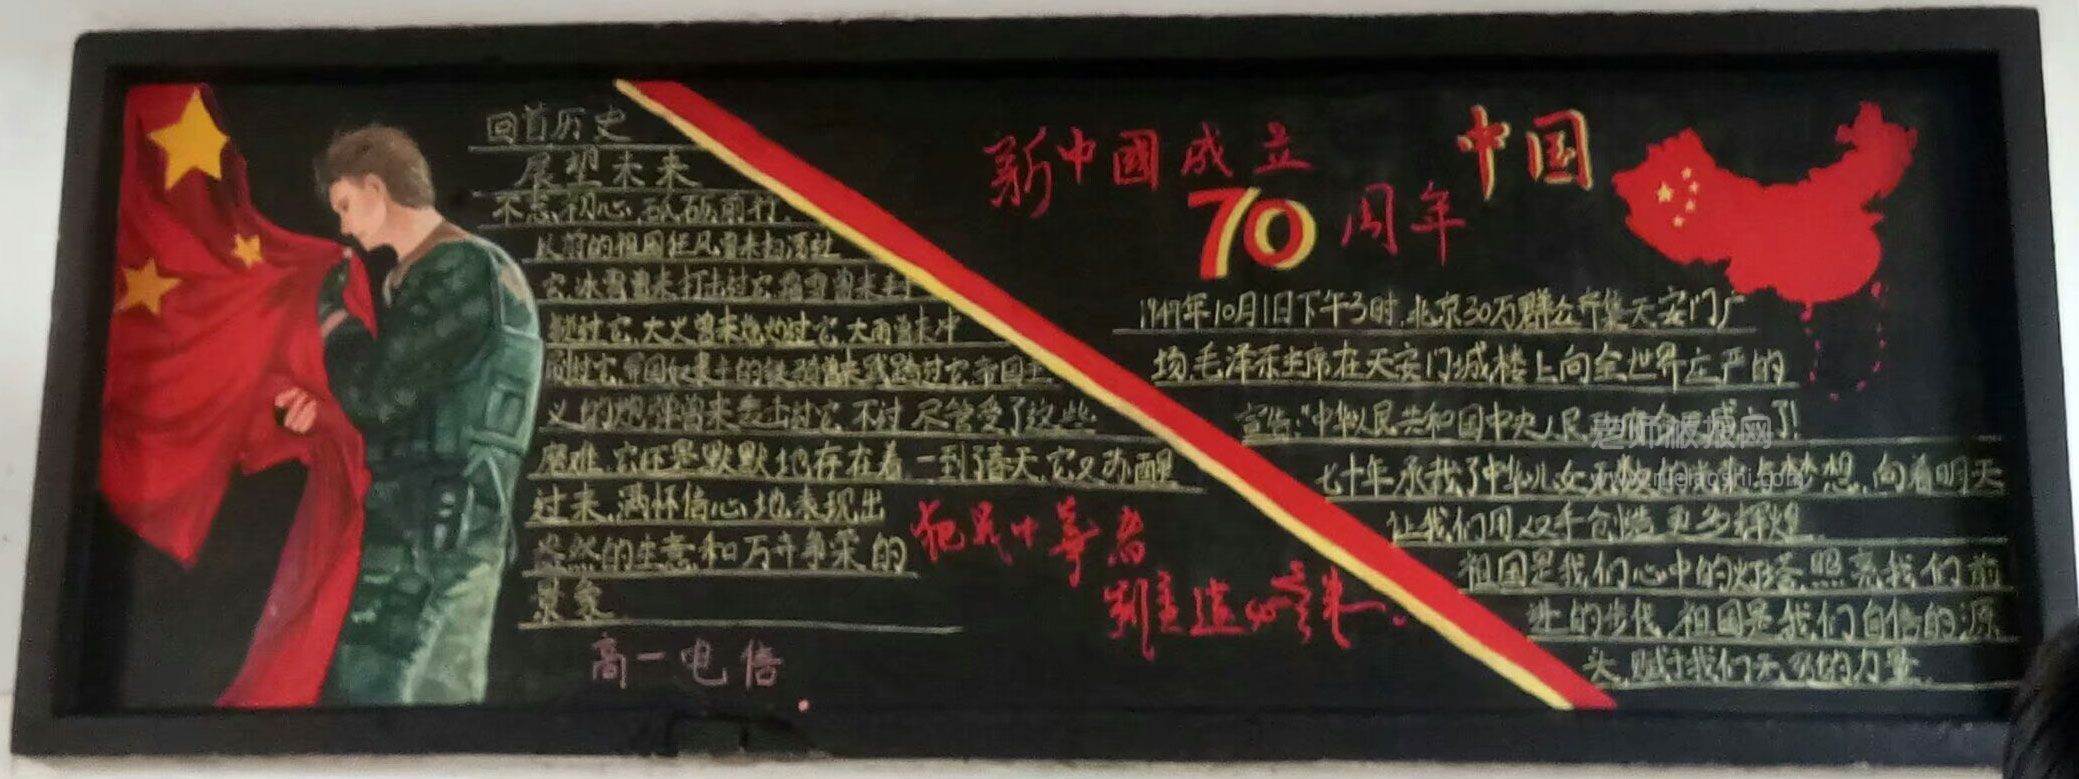 回首历史
展望未来
不忘初心,砥砺前行,
从前的祖国狂风曾来扫荡过
它,冰雪曾来打击过它,霜雪曾来封
锁过它,大火曾来烧灼过它,大雨曾来冲
刷过它,帝国奴隶主的铁蹄曾来践踏过它,帝国主
义的炮弹曾来轰击过它,不过,尽管受了这些
磨难,它还是默默地存在着,一到了春天,它又苏醒
过来,满怀信心地表现出
盎然的生意和万卉争荣的
景象
高一电信
犯我中华者
虽远必诛
新中國成立
70周年
中国
1949年10月1日下午3时,北京30万群众齐集天安门广
场,毛泽东主席在天安门城楼上向全世界庄严的
宣告:"中华人民共和国中央人民政府今天成立了!
老师板报网
七十年承载了中华儿女无数的光荣与梦想,向着明天
让我们用双手创造更多辉煌
祖国是我们心中的灯塔,照亮我们前
进的步伐,祖国是我们自信的源
头,赋予我们无穷的力量